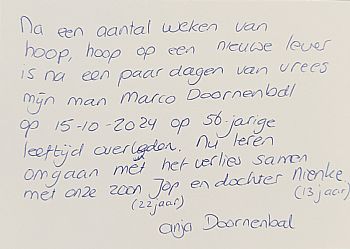 Na een aantal weken van
hoop, hoop op een nieuwe lever
is na een paar dagen van vrees
mijn man Marco Doornenbal
op 15-10-2024 op 56-jarige
leeftijd overleden. Nu leren
omgaan met het verlies samen
met onze zoon Jop en dochter Nienke
(22 jaar) (13 jaar)
Anja Doornenbal